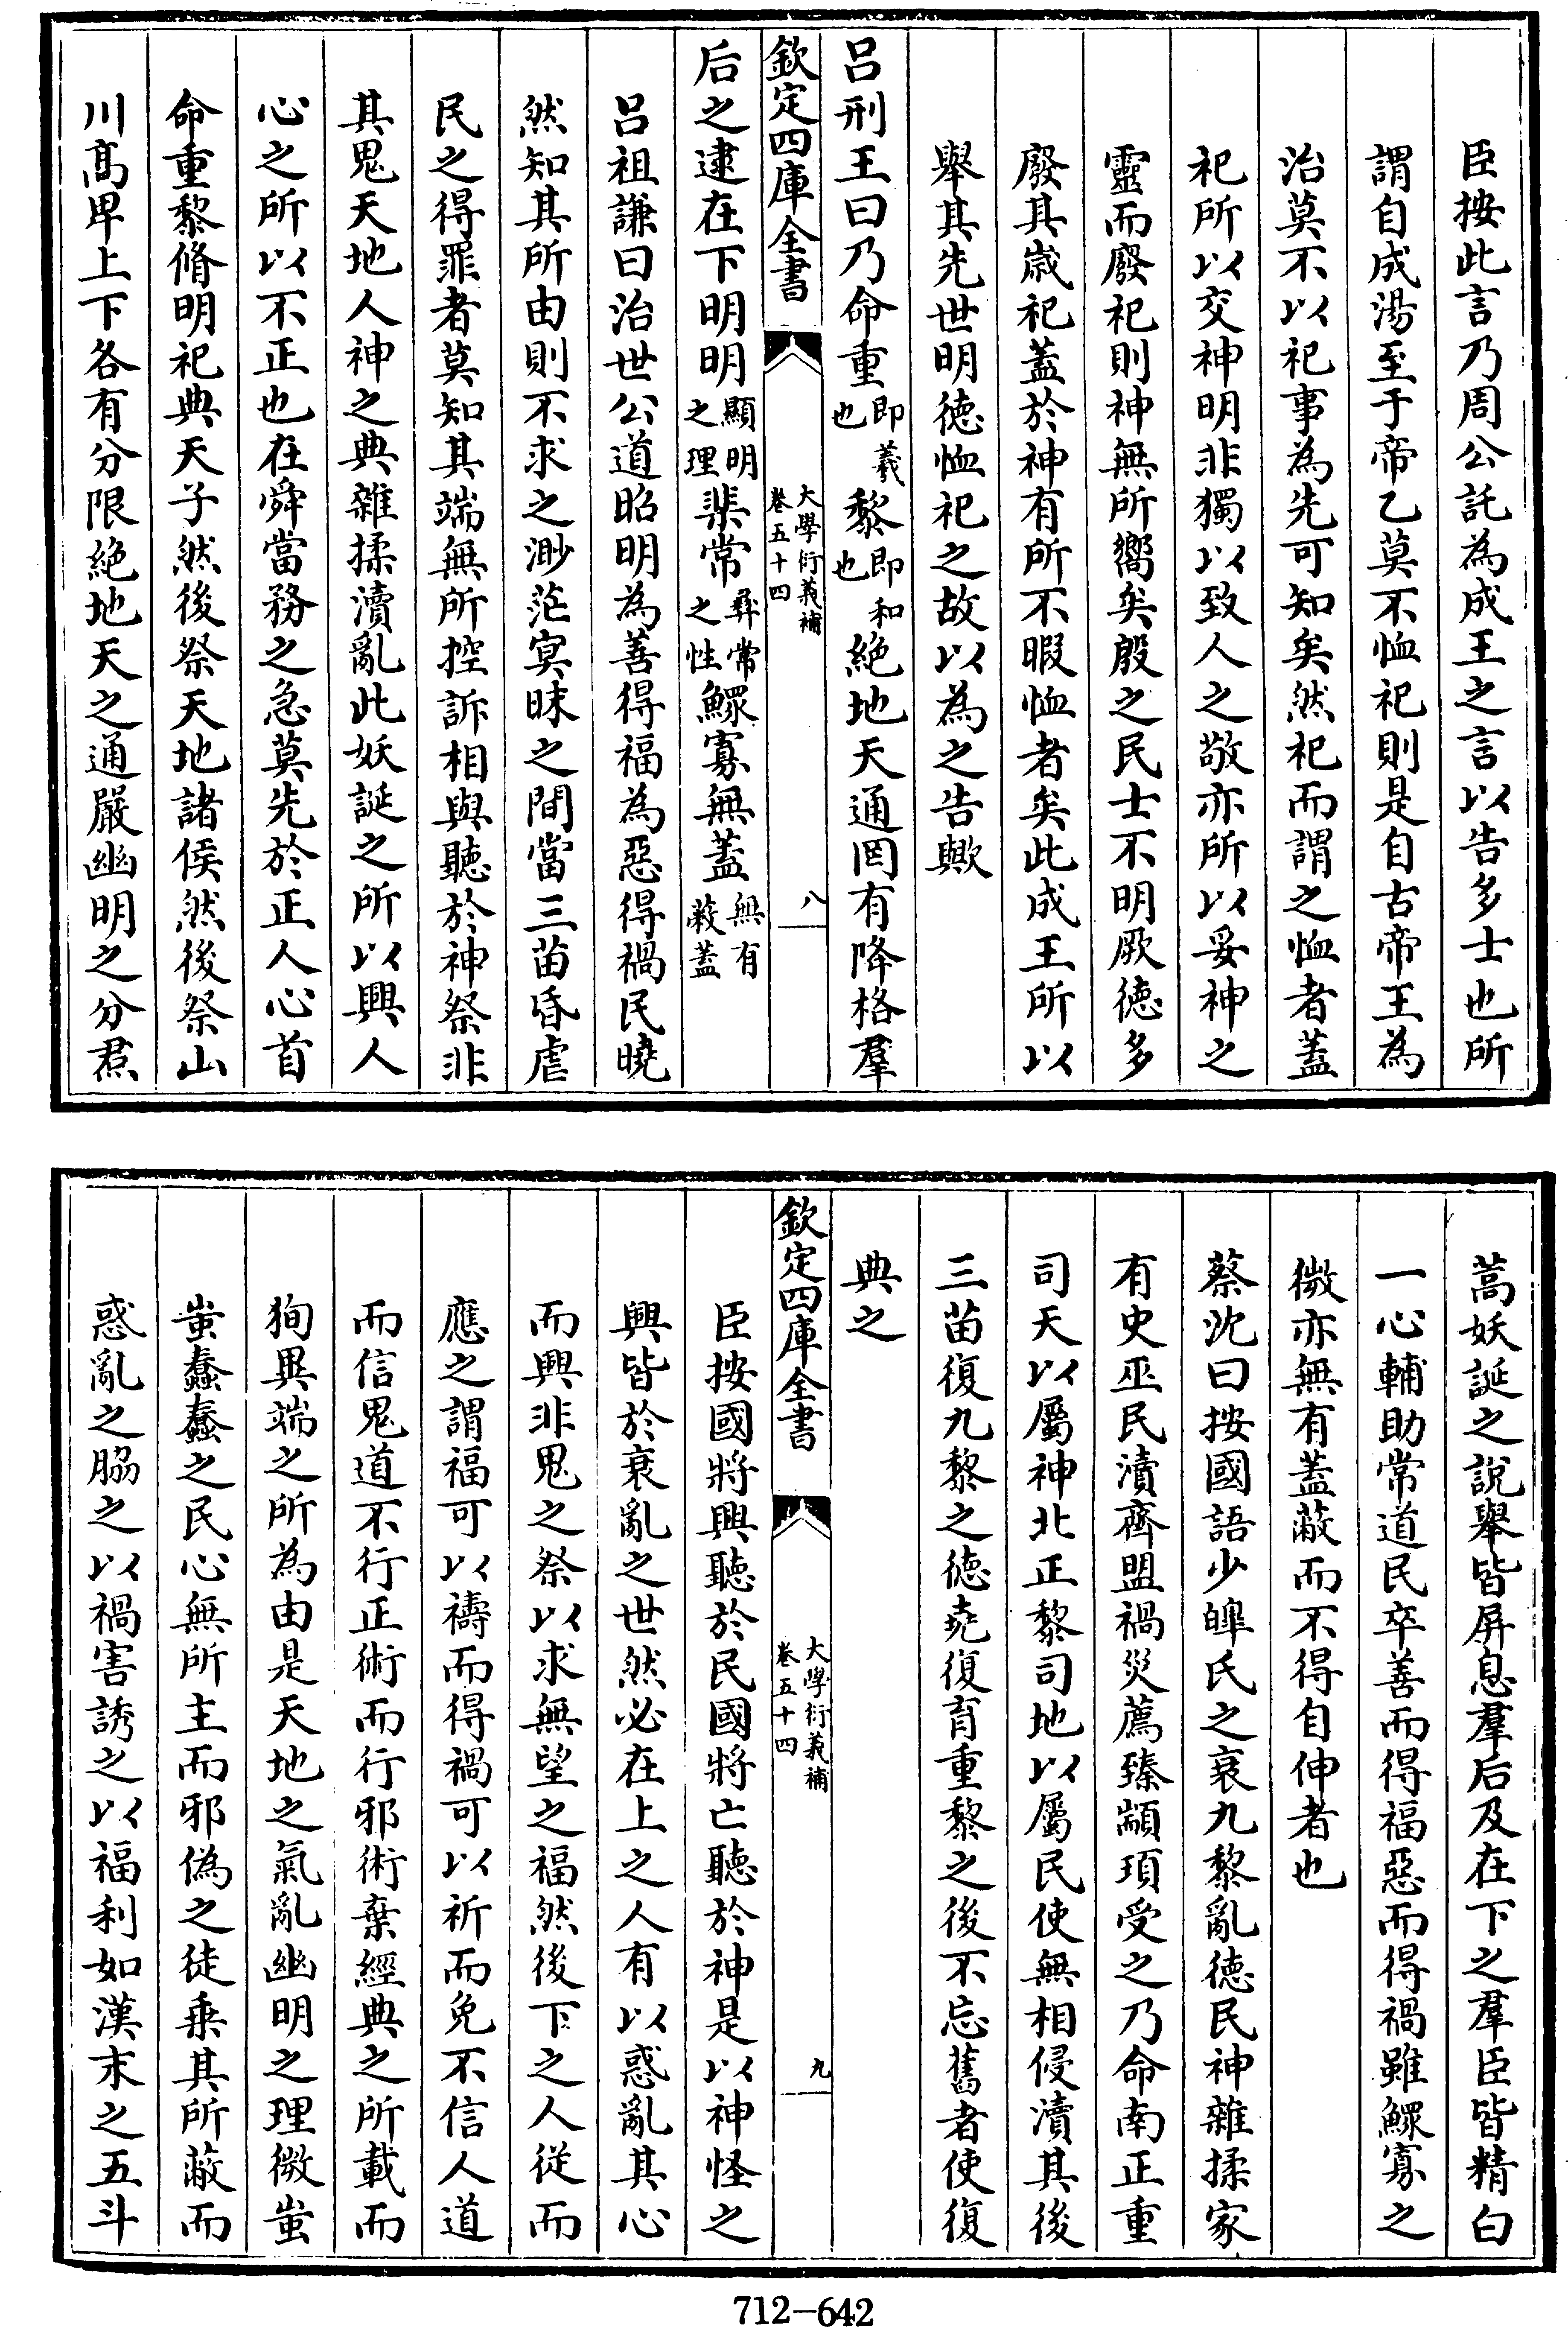 臣按此言乃周公託為成王之言以告多士也所
謂自成湯至于帝乙莫不恤祀則是自古帝王為
治莫不以祀事為先可知矣然祀而謂之恤者蓋
祀所以交神明非獨以致人之敬亦所以妥神之
靈而廢祀則神無所嚮矣殷之民士不明厥徳多
廢其嵗祀蓋於神有所不暇恤者矣此成王所以
舉其先世明徳恤祀之故以為之告歟
吕刑王曰乃命重即羲也黎即和也絶地天通罔有降格羣
欽定四庫全書
大學衍義補
卷五十四
八
后之逮在下明明顯明之理棐常彝常之性鰥寡無蓋無有蔽蓋
吕祖謙曰治世公道昭明為善得福為惡得禍民曉
然知其所由則不求之渺茫冥昧之間當三苗昏虐
民之得罪者莫知其端無所控訴相與聽於神祭非
其鬼天地人神之典雜揉瀆亂此妖誕之所以興人
心之所以不正也在舜當務之急莫先於正人心首
命重黎脩明祀典天子然後祭天地諸侯然後祭山
川髙卑上下各有分限絶地天之通嚴幽明之分焄
蒿妖誕之說舉皆屏息羣后及在下之羣臣皆精白
一心輔助常道民卒善而得福惡而得禍雖鰥寡之
微亦無有蓋蔽而不得自伸者也
蔡沈曰按國語少皥氏之衰九黎亂徳民神雜揉家
有史巫民瀆齊盟禍災薦臻顓頊受之乃命南正重
司天以屬神北正黎司地以屬民使無相侵瀆其後
三苗復九黎之徳堯復育重黎之後不忘舊者使復
典之
欽定四庫全書
大學衍義補
卷五十四
九
臣按國將興聽於民國將亡聽於神是以神怪之
興皆於衰亂之世然必在上之人有以惑亂其心
而興非鬼之祭以求無望之福然後下之人從而
應之謂福可以禱而得禍可以祈而免不信人道
而信鬼道不行正術而行邪術棄經典之所載而
狥異端之所為由是天地之氣亂幽明之理微蚩
蚩蠢蠢之民心無所主而邪偽之徒乗其所蔽而
惑亂之脇之以禍害誘之以福利如漢末之五斗
712-642